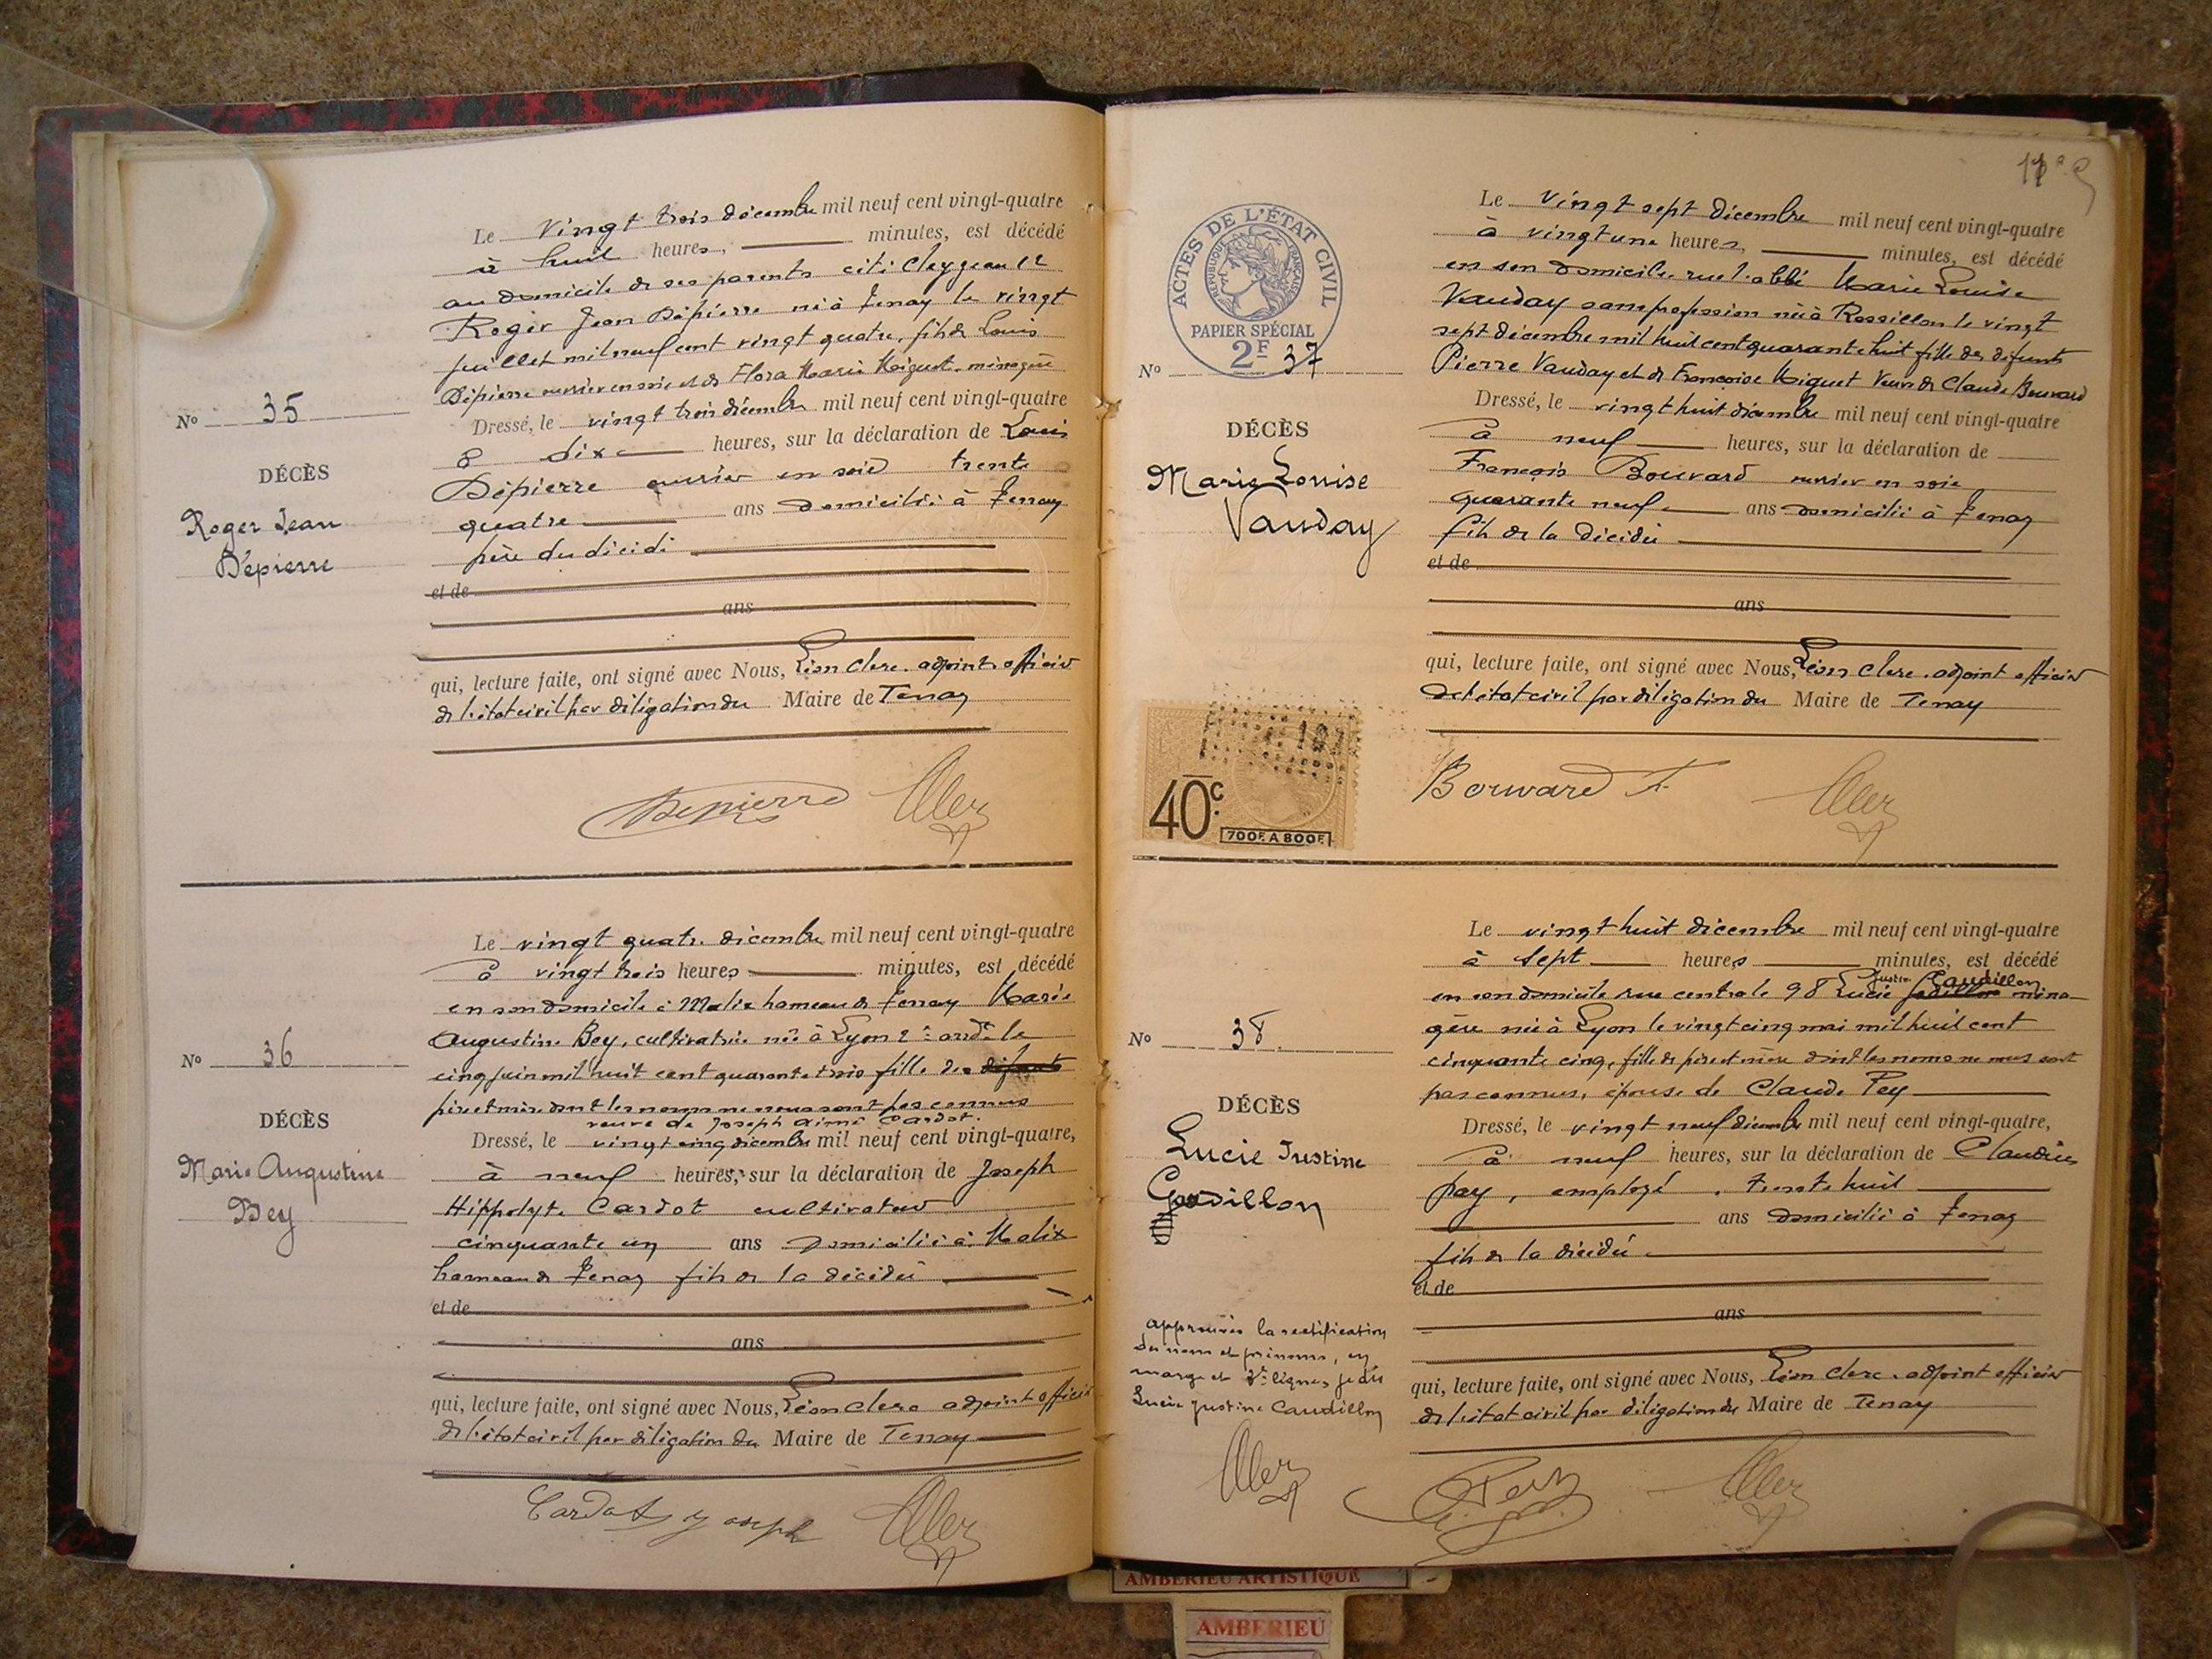 Le vingt trois décembre mil neuf cent vingt-quatre
à huit heures, minutes, est décédé
au domicile de ses parents cité
Roger Jean Dépierre né à Tenay le vingt
juillet mil neuf cent vingt quatre, fils de Louis
Dépierre ouvrier en soie et de Flora Marie ménagère
No 35
Dressé, le vingt trois décembre mil neuf cent vingt-quatre
à dix heures, sur la déclaration de Louis
DÉCÈS
Dépierre ouvrier en soie trente
Roger Jean
quatre ans domicilié à Tenay
Dépierre
père du décédé
et de
ans
qui, lecture faite, ont signé avec Nous, Léon Clerc adjoint officier
de l'état civil par délégation du Maire de Tenay
Depierre
Le vingt quatre décembre mil neuf cent vingt-quatre
à vingt trois heures minutes, est décédé
en son domicile à Malix hameau de Tenay Marie
Augustine Bey, cultivatrice née à Lyon 2e ardt le
cinq juin mil huit cent quarante trois fille de défunts
No 36
père et mère dont les noms ne nous sont pas connus
veuve de Joseph Aimé Cardot.
DÉCÈS
Dressé, le vingt cinq décembre mil neuf cent vingt-quatre,
Marie Augustine
à neuf heures, sur la déclaration de Joseph
Bey
Hippolyte Cardot cultivateur
cinquante un ans domicilié à Malix
hameau de Tenay fils de la décédée
et de
ans
qui, lecture faite, ont signé avec Nous, Léon Clerc adjoint officier
de l'état civil par délégation du Maire de Tenay
Cardot Joseph
ACTES DE L'ÉTAT CIVIL
RÉPUBLIQUE FRANÇAISE
PAPIER SPÉCIAL
2F
Le vingt sept décembre mil neuf cent vingt-quatre
à vingt une heures, minutes, est décédé
en son domicile rue l'abbé Marie Louise
Vauday sans profession née à Rossillon le vingt
sept décembre mil huit cent quarante huit fille des défunts
No 37
Pierre Vauday et de Françoise Miguet veuve de Claude Bouvard
Dressé, le vingt huit décembre mil neuf cent vingt-quatre
DÉCÈS
à neuf heures, sur la déclaration de
Marie Louise
François Bouvard ouvrier en soie
Vauday
quarante neuf ans domicilié à Tenay
fils de la décédée
et de
ans
qui, lecture faite, ont signé avec Nous, Léon Clerc adjoint officier
de l'état civil par délégation du Maire de Tenay
40c.
700F. A 800F.
Bouvard F.
Le vingt huit décembre mil neuf cent vingt-quatre
à sept heures minutes, est décédé
Justine Caudillon
en son domicile rue centrale 98 Lucie ména-
gère née à Lyon le vingt cinq mai mil huit cent
No 38
cinquante cinq, fille de père et mère dont les noms ne nous sont
pas connus, épouse de Claude Pey
DÉCÈS
Dressé, le vingt neuf décembre mil neuf cent vingt-quatre,
Lucie Justine
à neuf heures, sur la déclaration de Claudius
Caudillon
pey, employé, trente huit
ans domicilié à Tenay
fils de la décédée
et de
ans
approuvée la rectification
du nom et prénoms, en
marge et 3e ligne, je dis
Lucie Justine Caudillon
qui, lecture faite, ont signé avec Nous, Léon Clerc adjoint officier
de l'état civil par délégation du Maire de Tenay
AMBERIEU ARTISTIQUE
AMBERIEU